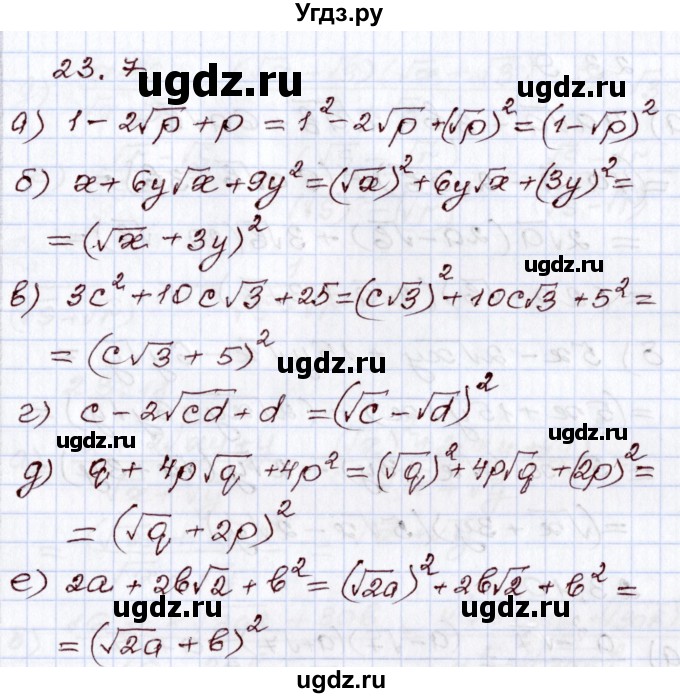 Угдз.ру
23.7
ugdz.ru
а) 1 - 2√p + p = 1² - 2√p + (√p)² = (1 - √p)²
б) x + 6y√x + 9y² = (√x)² + 6y√x + (3y)² =
= (√x + 3y)²
ugdz.ru
в) 3c² + 10c√3 + 25 = (c√3)² + 10c√3 + 5² =
= (c√3 + 5)²
ugdz.ru
г) c - 2√cd + d = (√c - √d)²
ugdz.ru
ugdz.ru
д) q + 4p√q + 4p² = (√q)² + 4p√q + (2p)² =
= (√q + 2p)²
ugdz.ru
е) 2a + 2b√2 + b² = (√2a)² + 2b√2 + b² =
ugdz.ru
= (√2a + b)²
ugdz.ru
ugdz.ru